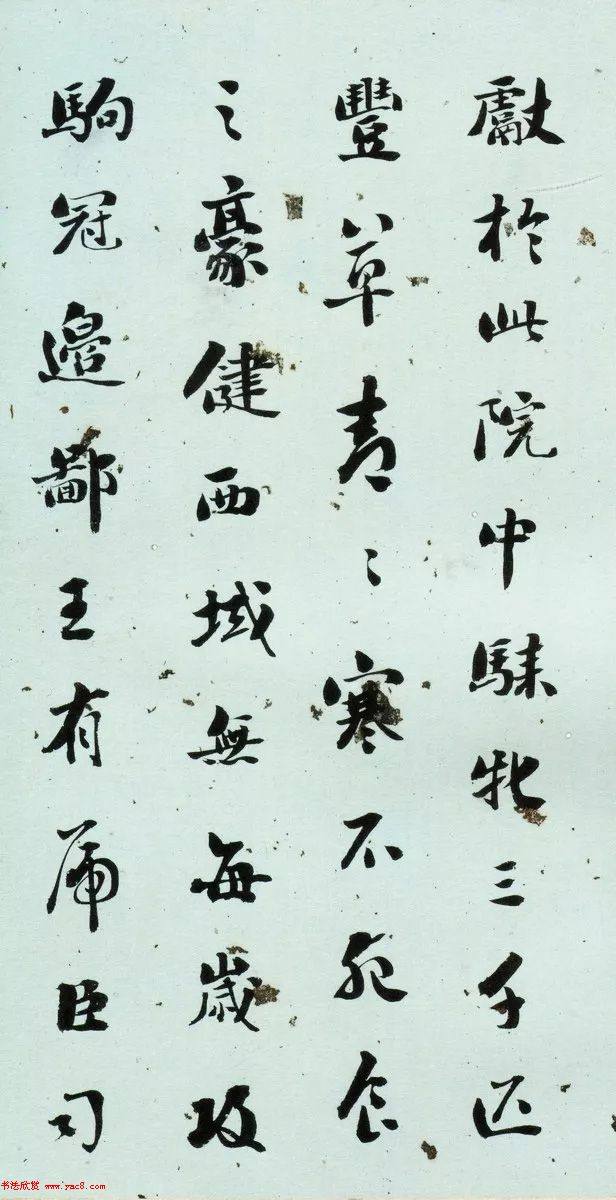 獻於此院中騋牝三千匹
豐草青〻寒不死食
之豪健西域無每歲攻
駒冠邊鄙王有虎臣司
书法欣赏 www.yac8.com